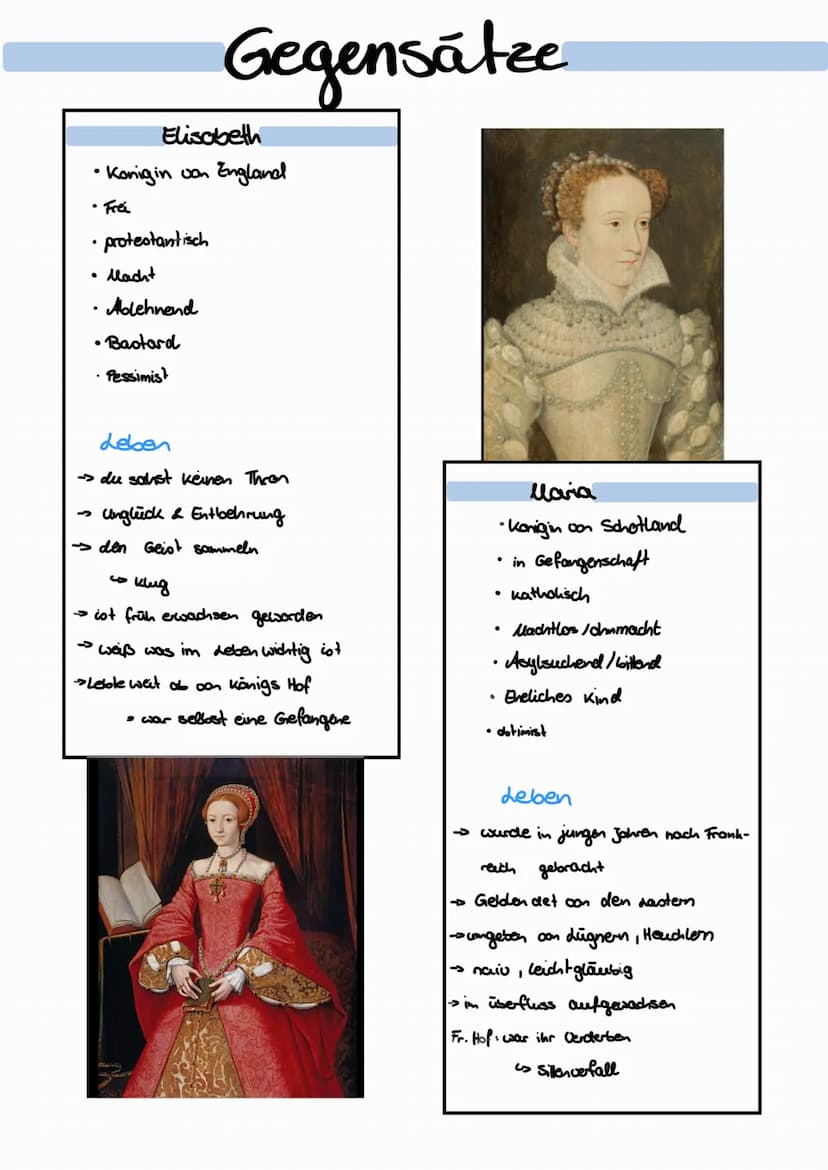 Gegensätze
Elisabeth
• Königin von England
• Frei
• protestantisch
• Macht
• Ablehnend
• Bastard
• Pessimist
Leben
→ du sahst keinen Thron
→ Unglück & Entbehrung
→ den Geist sammeln
↳ klug
→ ist früh erwachsen geworden
→ weiß was im Leben wichtig ist
→ Lebte weit ab von Königs Hof
• war selbst eine Gefangene
Maria
• Königin von Schottland
• in Gefangenschaft
• katholisch
• Machtlos / ohnmacht
• Asylsuchend / bittend
• Eheliches Kind
• Optimist
Leben
→ wurde in jungen Jahren nach Frank-
reich gebracht
→ Geblendet von den Lastern
→ umgeben von Lügnern, Heuchlern
→ naiv, leichtgläubig
→ im überfluss aufgewachsen
Fr. Hof: war ihr Verderben
↳ Sittenverfall